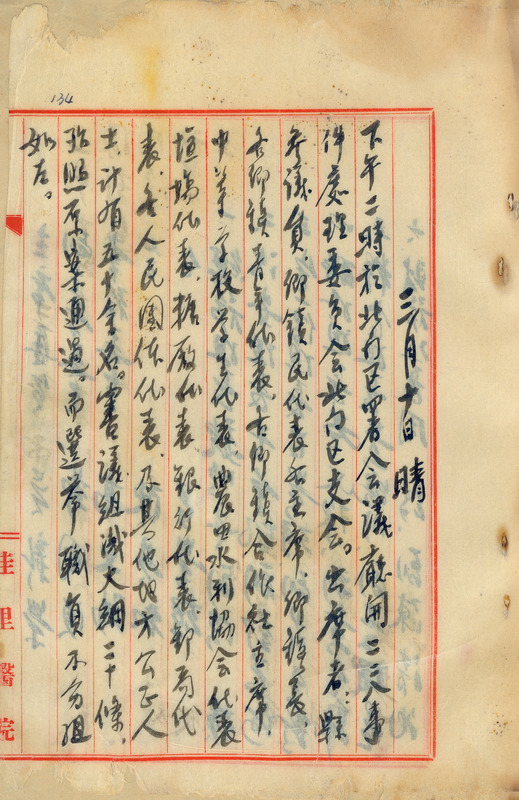 134
三月十日 晴
下午二時於北門区署会議廳開二二八事
件處理委員会北門区支会。出席者：縣
参議員、鄉鎮民代表各主席、鄉鎮長、
各鄉鎮青年代表、各鄉鎮合作社主席、
中等学校学生代表、農田水利協会代表
塩場代表、糖廠代表、銀行代表、郵局代
表、各人民團体代表、及其他地方公正人
士、計有五十余名。審議組織大綱二十條、
照原案通過。而選挙職員不分組
如左。
佳里醫院